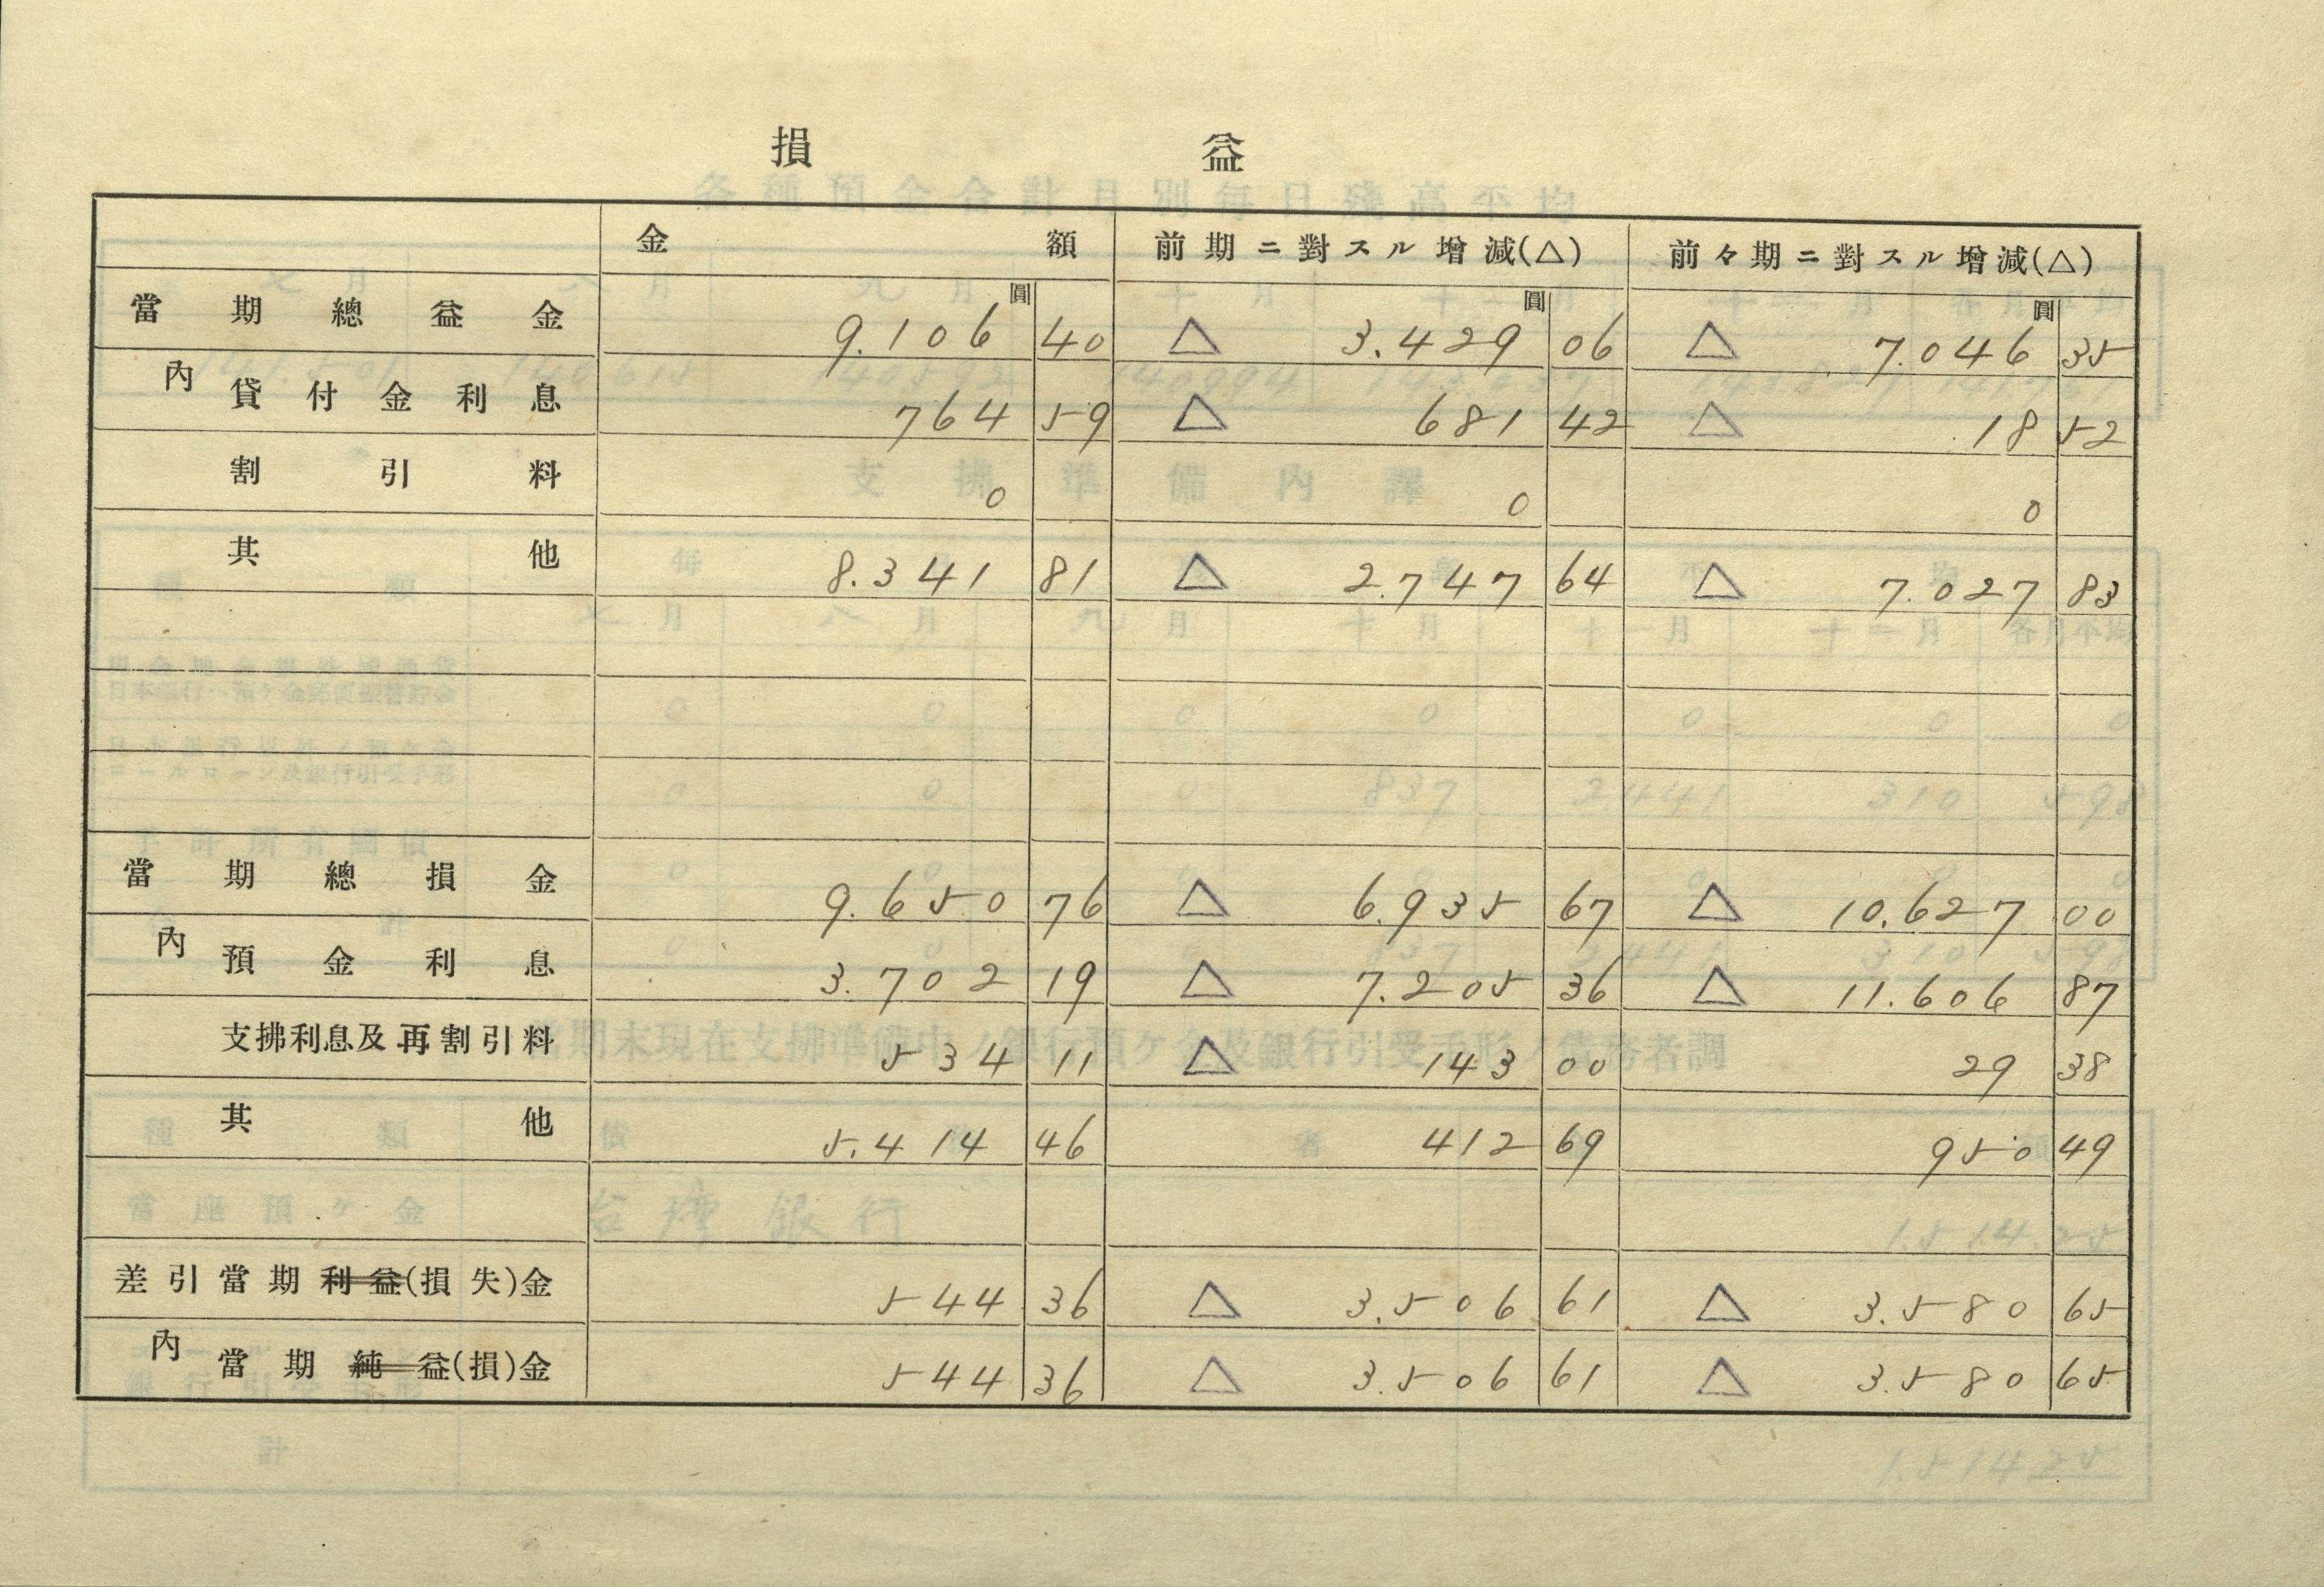 損益
金額 前期ニ對スル增減(△) 前々期ニ對スル增減(△)
圓 圓 圓
當期總益金 9.106 40 △ 3.429 06 △ 7.046 35
內 貸付金利息 764 59 △ 681 42 △ 18 52
割引料 0 0 0
其他 8.341 81 △ 2.747 64 △ 7.027 83
當期總損金 9.650 76 △ 6.935 67 △ 10.627 00
內 預金利息 3.702 19 △ 7.205 36 △ 11.606 87
支拂利息及再割引料 534 11 △ 143 00 29 38
其他 5.414 46 412 69 950 49
差引當期利益(損失)金 544 36 △ 3.506 61 △ 3.580 65
內 當期純益(損)金 544 36 △ 3.506 61 △ 3.580 65